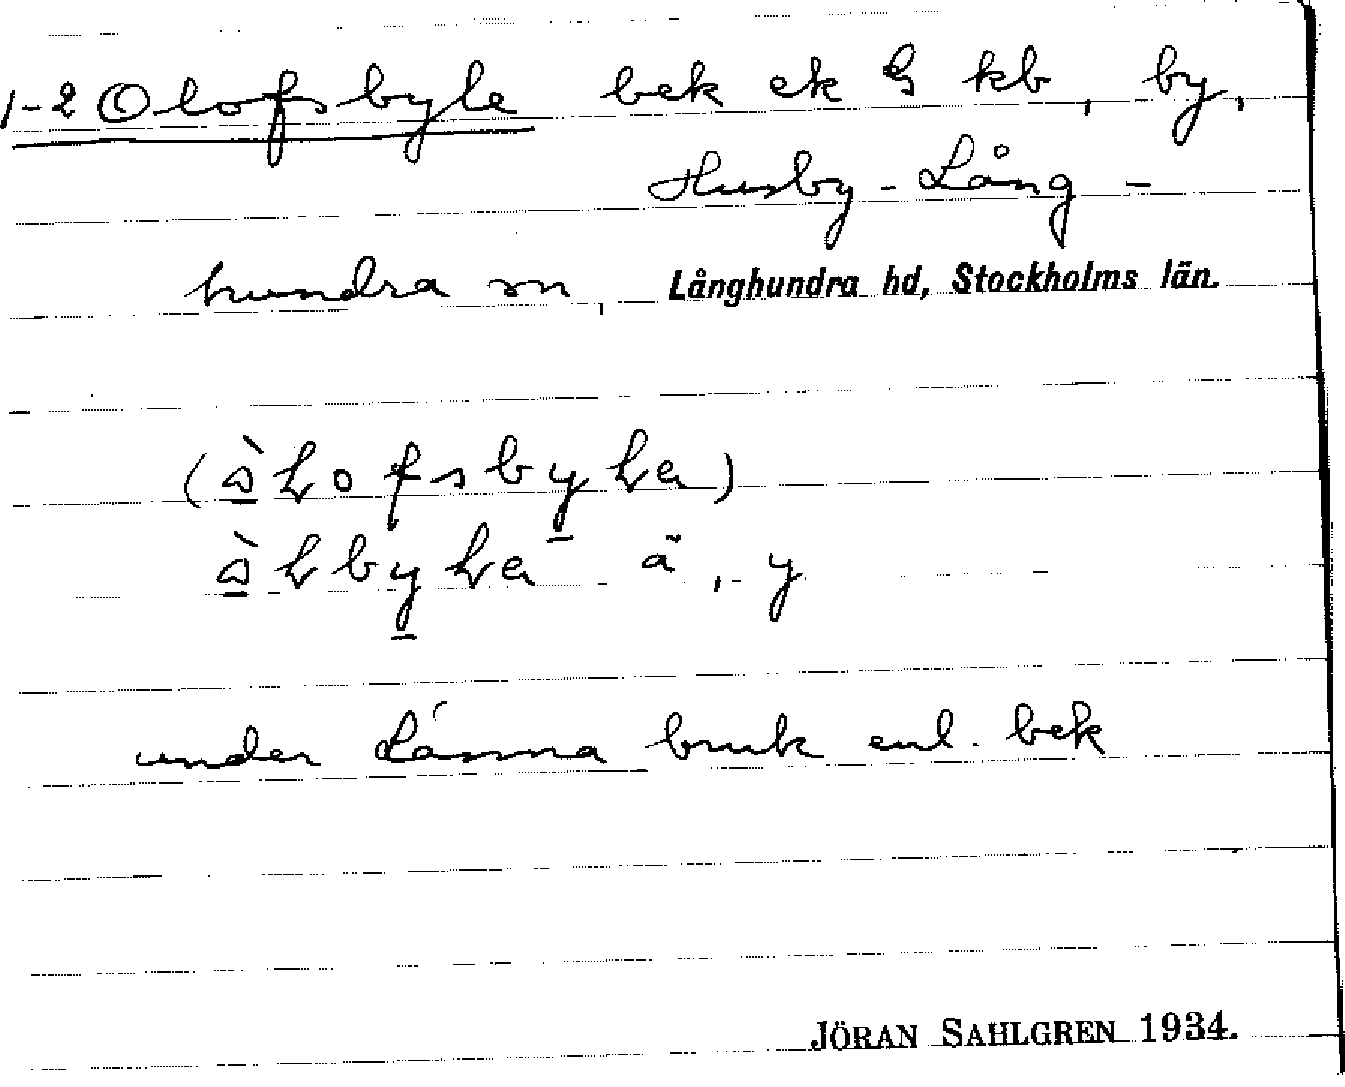 1-2 Olofsbyle bek ek G kb, by,
Husby-Lång-
hundra sn, Långhundra hd, Stockholms län.
under Länna bruk enl. bek
JÖRAN SAHLGREN 1934.